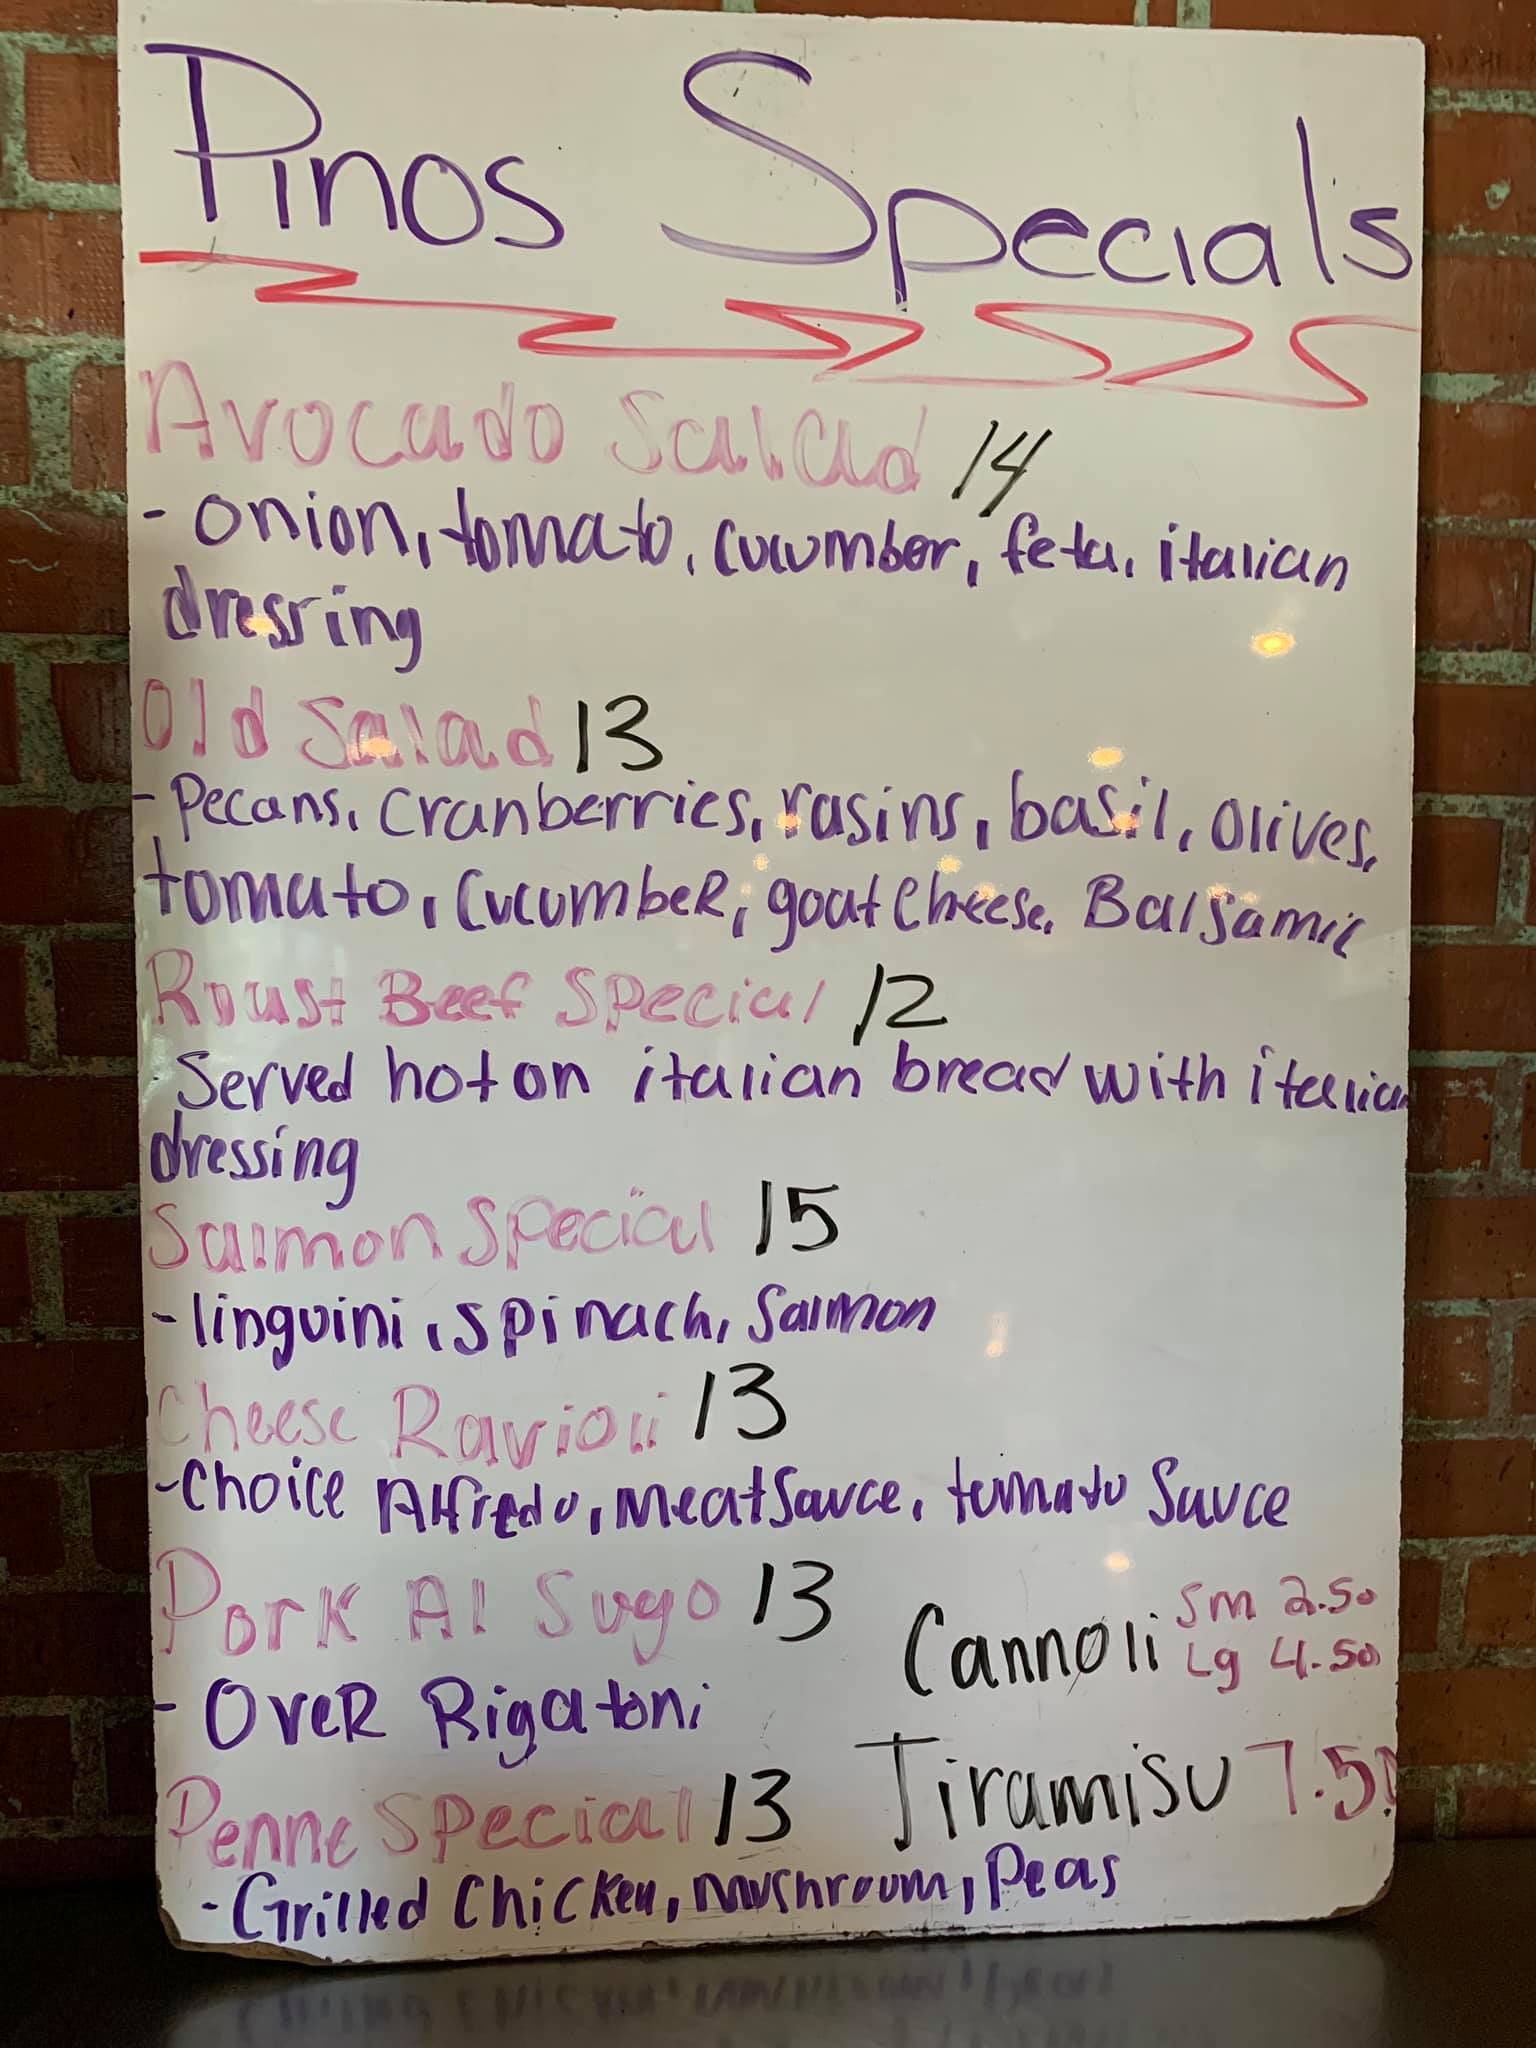 Pinos Specials
Avocado Salad 14
- onion, tomato, cucumber, feta, italian
dressing
Old Salad 13
- Pecans, cranberries, rasins, basil, olives,
tomato, cucumbeR, goat cheese, Balsamic
Roast Beef Special 12
Served hot on italian bread with italian
dressing
Salmon Special 15
- linguini, spinach, Salmon
Cheese Ravioli 13
- Choice Alfredo, Meat Sauce, tomato Sauce
Pork Al Sugo 13
- OveR Rigatoni
Cannoli Sm 2.50
Lg 4.50
Tiramisu 7.50
Penne Special 13
- Grilled Chicken, mushroom, Peas